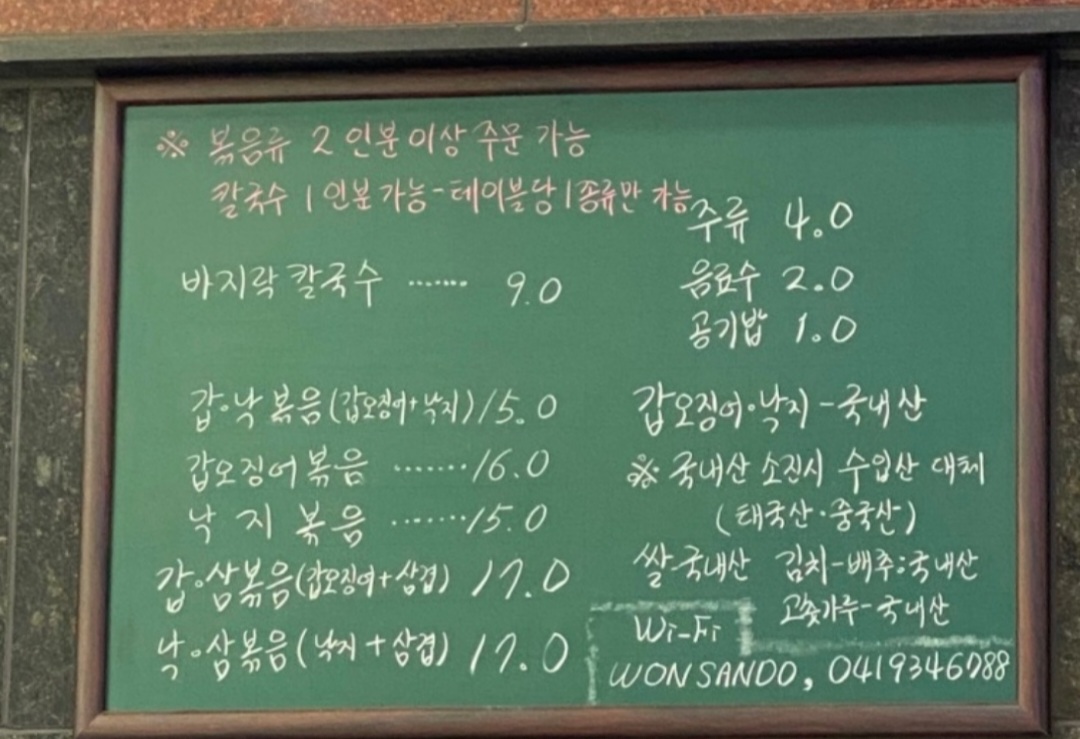 ※ 볶음류 2인분이상 주문 가능
칼국수 1인분 가능-테이블당 1종류만 가능
바지락 칼국수 ....... 9.0
갑·낙 볶음(갑오징어+낙지) 15.0
갑오징어 볶음 ....... 16.0
낙 지 볶음 ....... 15.0
갑·삼볶음(갑오징어+삼겹) 17.0
낙·삼볶음(낙지+삼겹) 17.0
주류 4.0
음료수 2.0
공기밥 1.0
갑오징어·낙지-국내산
※ 국내산 소진시 수입산 대체
(태국산·중국산)
쌀-국내산 김치-배추:국내산
고춧가루-국내산
Wi-Fi
WONSANDO, 0419346788